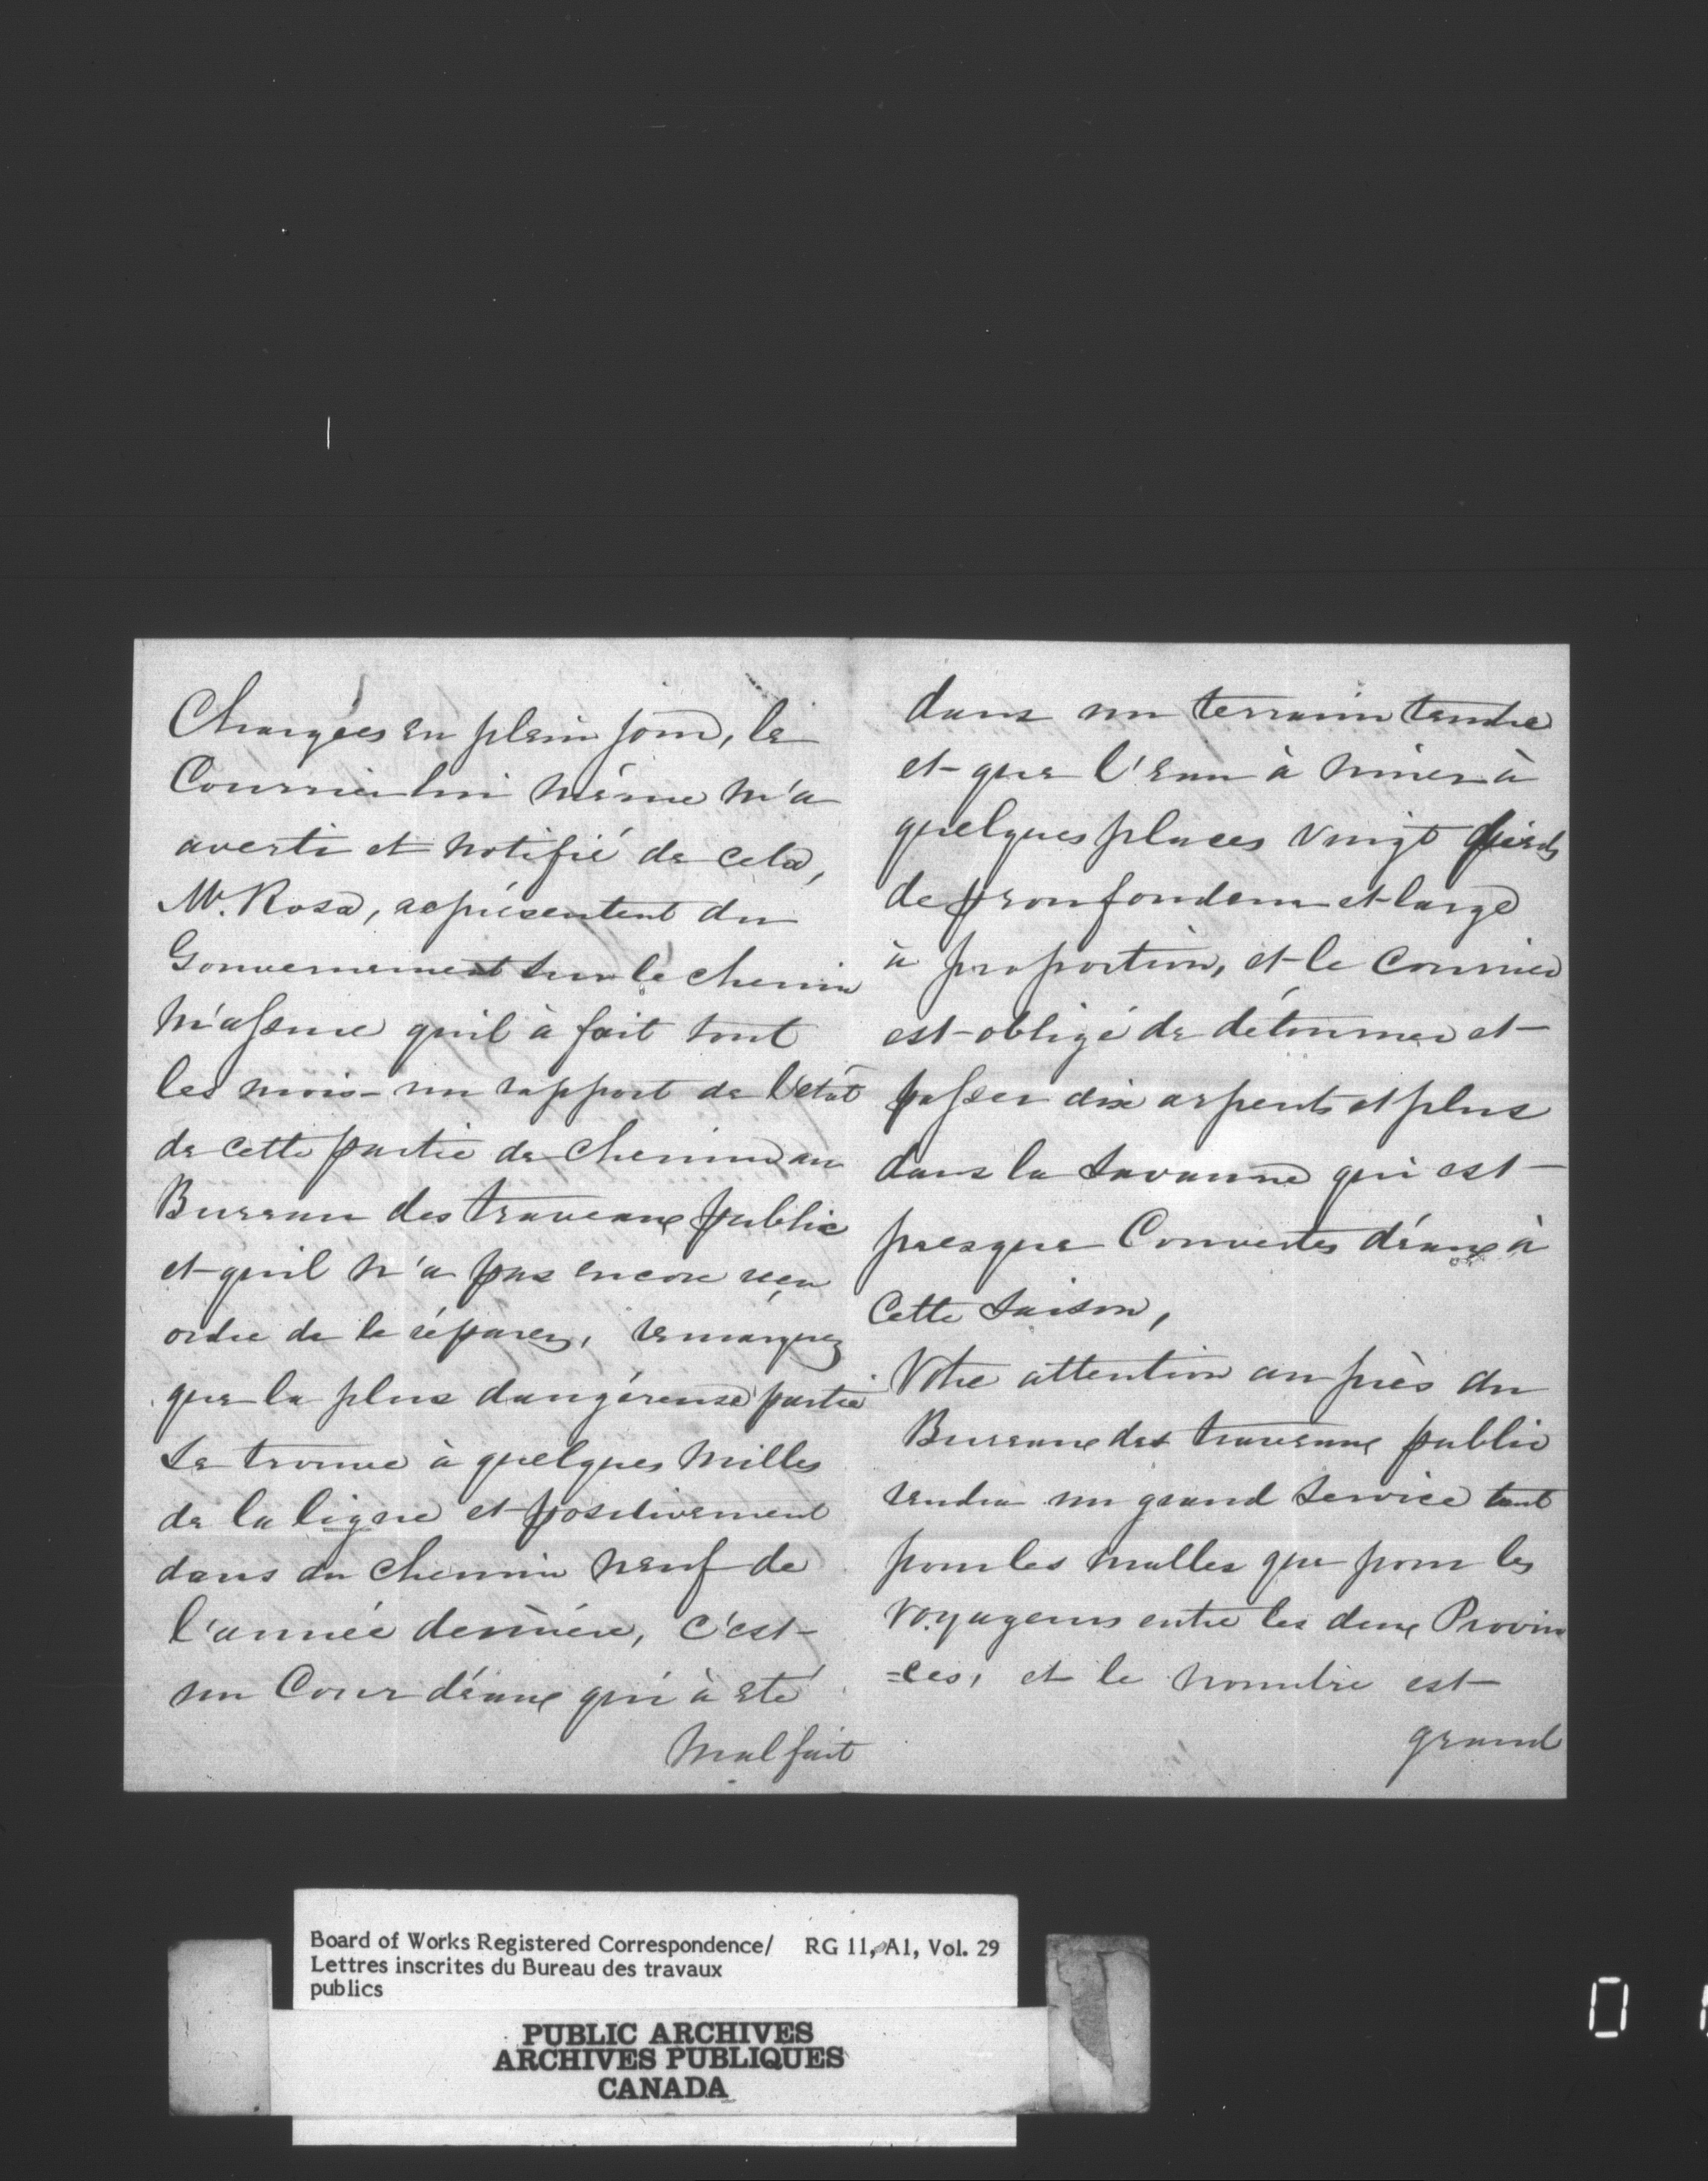 Chargées en plein jour, le
Courrier lui même m'a
averti et notifié de cela,
Mr. Rosa, represéntent du
Gouvernement sur le chemin
m'assure qu'il à fait tout
les mois un rapport de l'état
de cette partie de chemin au
Bureau des traveaux public
et qu'il n'a pas encore reçu
ordre de le réparer, remarquez
que la plus dangéreuse partie
se trouve à quelques milles
de la ligne et positivement
dans du chemin neuf de
l'année dernière, c'est
un Cour d'eaux qui à été
mal fait
dans un terrain tendre
et que l'eau à miner à
quelques places vingt pieds
de proufondeur et large
à proportion, et le Courrier
est obligé de détourner et
passer dix arpents et plus
dans la Savanne qui est
presque Couvertes d'eaux à
Cette Saison,
Votre attention au près du
Bureaux des traveaux public
rendra un grand Service tant
pour les malles que pour les
voyageurs entre les deux Provin
=ces, et le nombre est
grand
Board of Works Registered Correspondence/ RG 11, A1, Vol. 29
Lettres inscrites du Bureau des travaux
publics
PUBLIC ARCHIVES
ARCHIVES PUBLIQUES
CANADA
0